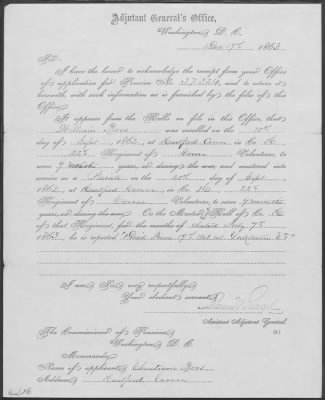 Adjutant General's Office,
Washington, D. C.
Dec 17th 1863
Sir:
I have the honor to acknowledge the receipt from your Office
of application for Pension No. and to return it
herewith, with such information as is furnished by the files of this
Office.
It appears from the Rolls on file in this Office, that
William was enrolled on the
day of Sept 1862, at Hartford Conn in Co. K
22d Regiment of Conn Volunteers, to
serve 9 months years, or during the war, and mustered into
service as a Private on the 20th day of Sept
1862, at Hartford Conn, in Co. K 22d
Regiment of Conn Volunteers, to serve 9 months
years, or during the war. On the Muster Roll of Co. K
of that Regiment, for the months of dated July 7th
1863, he is reported
I am, Sir, very respectfully,
Your obedient servant,
Assistant Adjutant General.
The Commissioner of Pensions,
Washington, D. C.
Memoranda:
Name of applicant, Christiana
Address, Hartford Conn